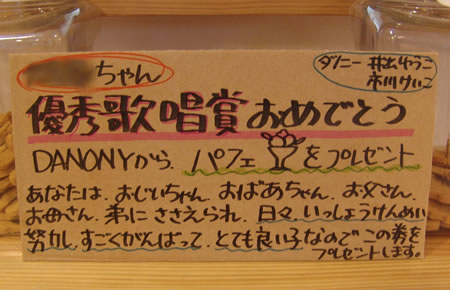 ちゃん
ダノニー 井出やすこ
市川けいこ
優秀歌唱賞おめでとう
DANONYから、パフェをプレゼント
あなたは、おじいちゃん、おばあちゃん、お父さん、
お母さん、弟にささえられ、日々、いっしょうけんめい
努力し、すごくがんばって、とても良い子なのでこの券を
プレゼントします。